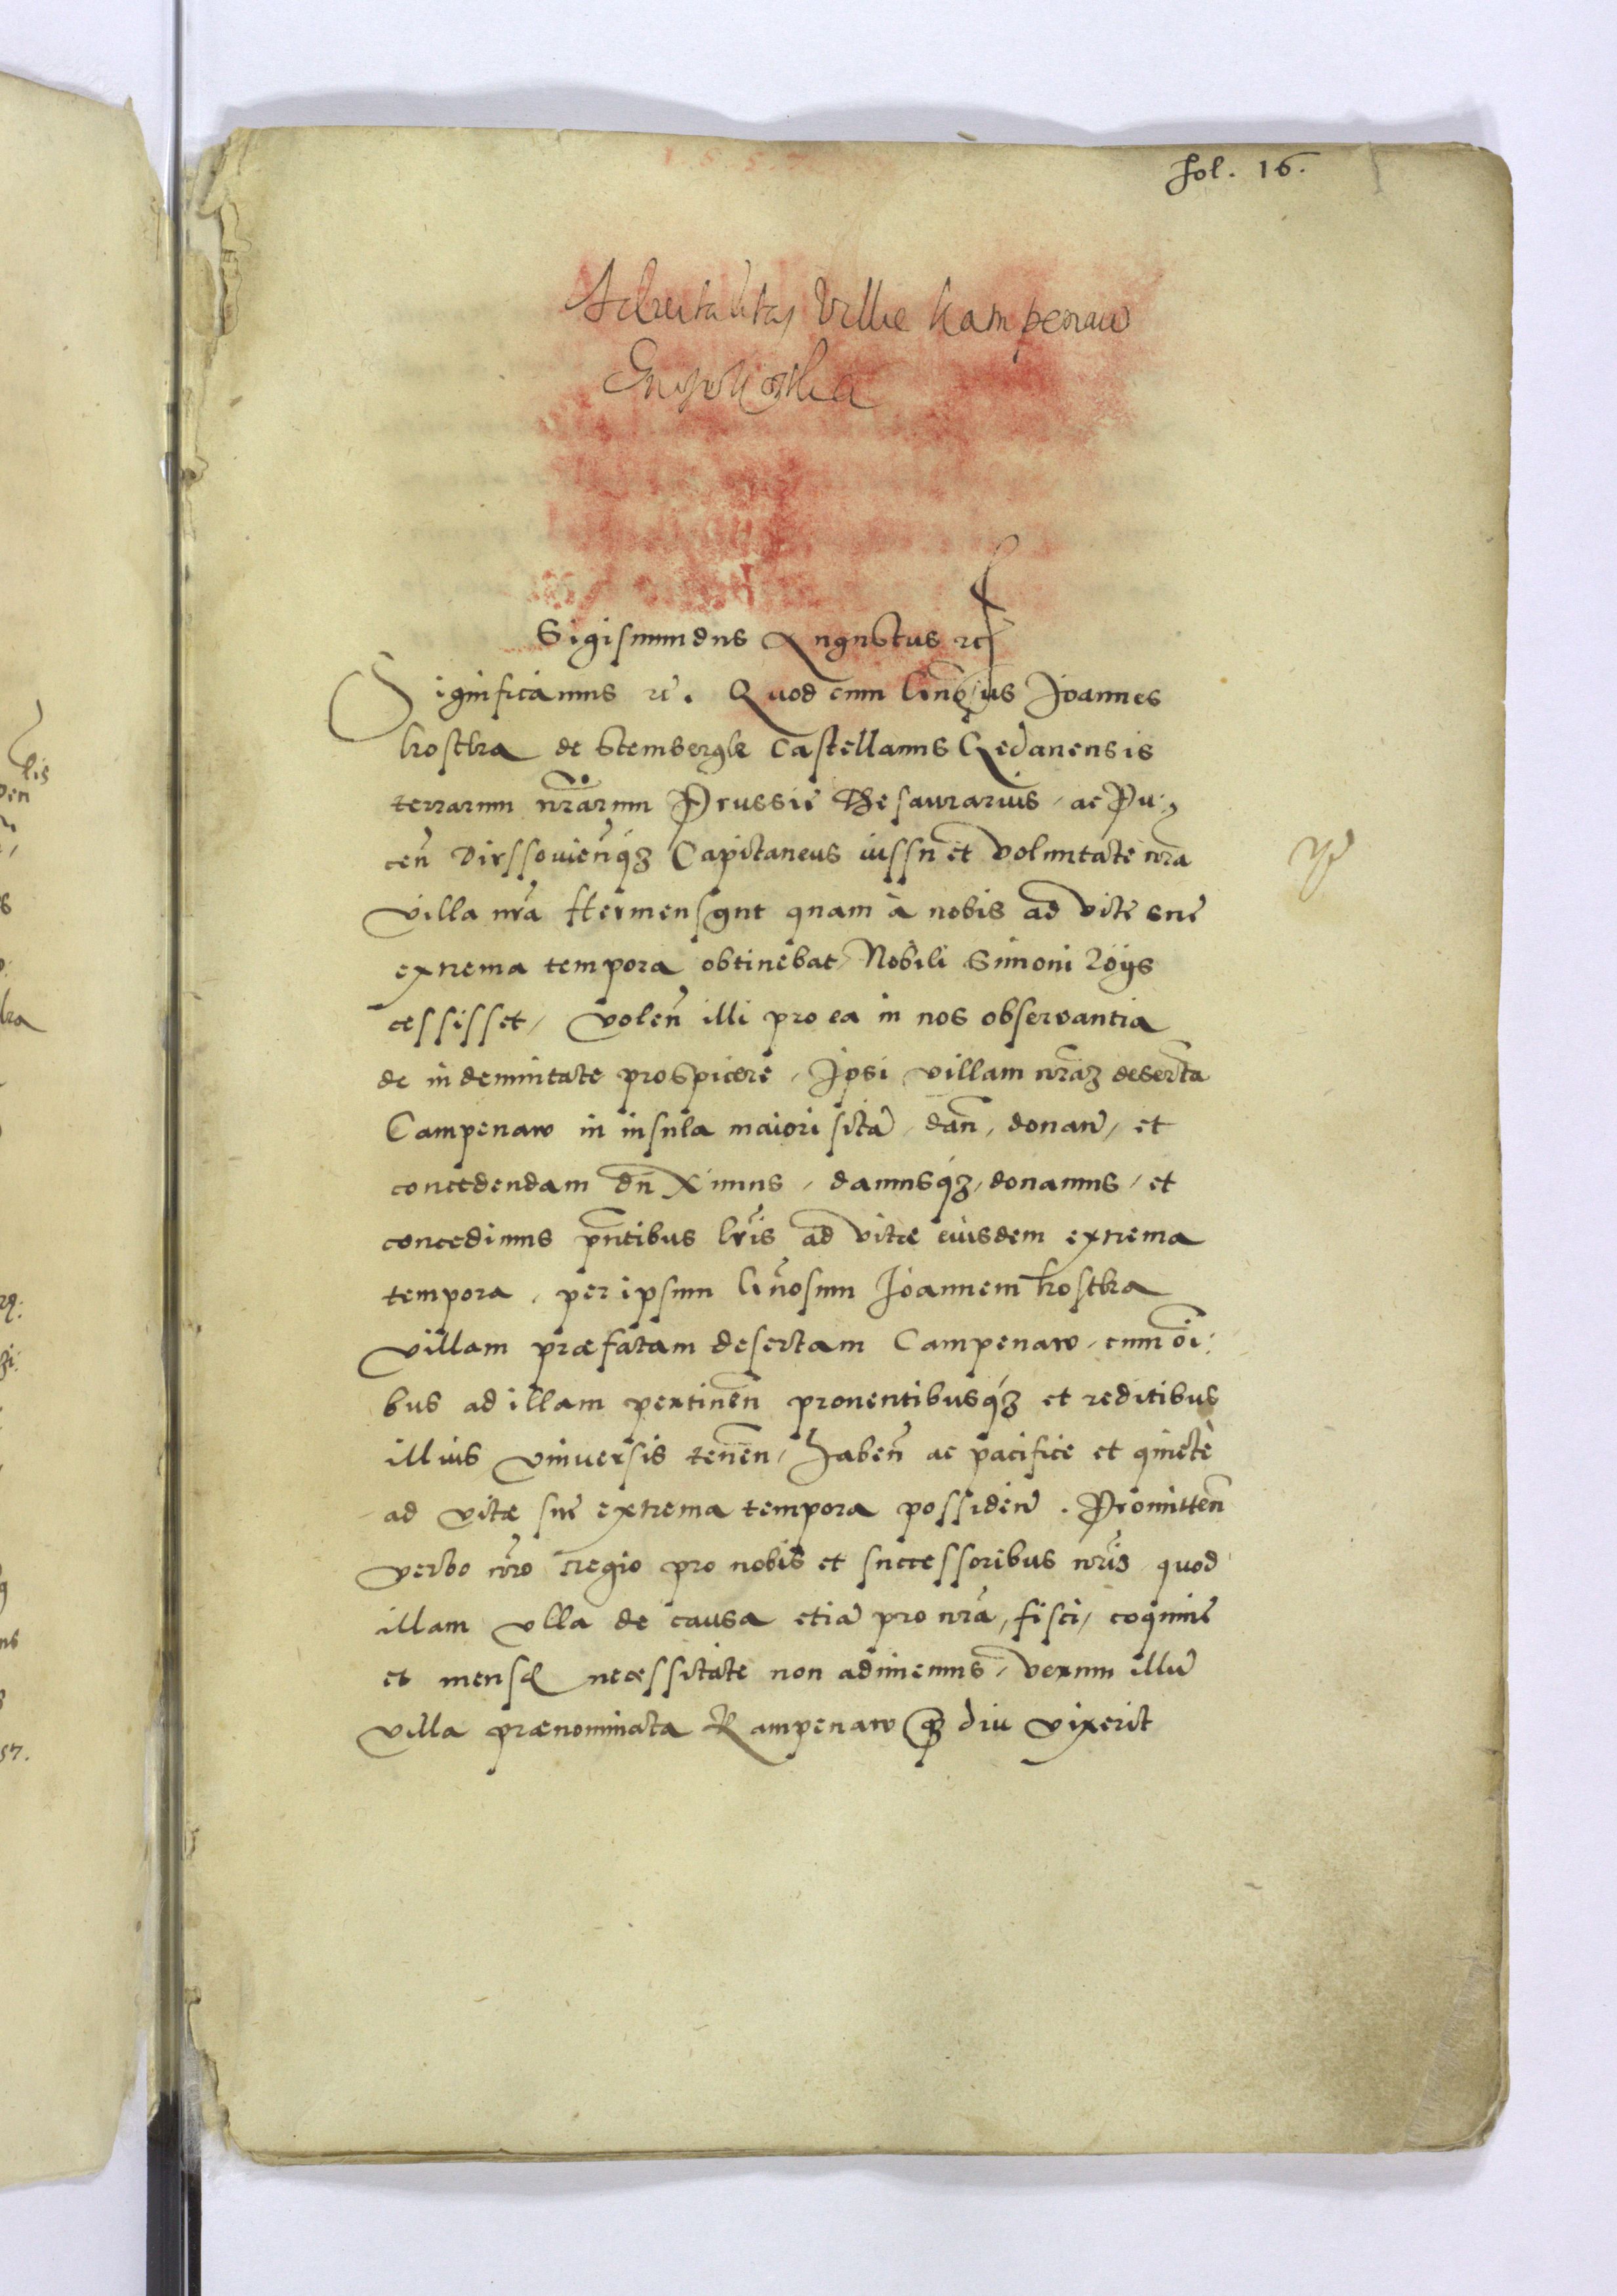 fol. 16.
Advitalitas Ville Kampenaw
Sigismundus Augustus rc
Significamus rc. Quod cum Gnosus Joannes
Kostka de Stembergk Castellanus Gedanensis
terrarum nrarum Prussie Thesaurarius, ac Pu:
cen Dirssouienqz Capitaneus iussu et voluntate nra
villa nra Hermensgut quam à nobis ad vite sue
extrema tempora obtinebat, Nobili Simoni Röÿs
cessisset, volen illi pro ea in nos observantia
de indemnitate prospicere, Ipsi villam nraz deserta
Campenaw in insula maiori sita, dan, donan, et
concedendam duximus, damusqz, donamus, et
concedimus pntibus lris ad vitæ eiusdem extrema
tempora, per ipsum Gnosum Joannem Kostka
villam præfatam desertam Campenaw, cum oi:
bus ad illam pertinen prouentibusqz et reditibus
illius vniuersis tenen, haben ac pacifice et quietè
ad vitæ sue extrema tempora possiden. Promitten
verbo nro regio pro nobis et successoribus nris quod
illam vlla de causa etia pro nra, fisci, coquine
et mensę necessitate non adimemus, verum illu
villa prænominata Kampenaw qz diu vixerit